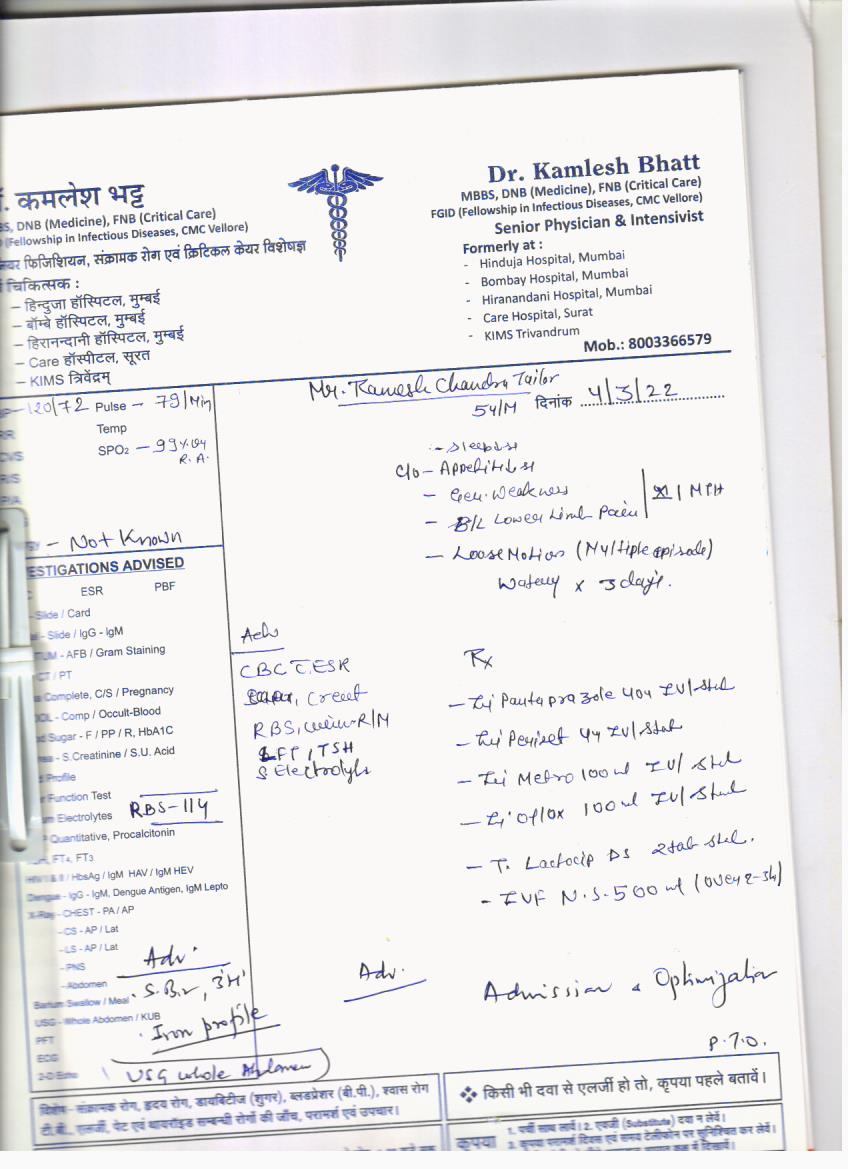 . कमलेश भट्ट
BS, DNB (Medicine), FNB (Critical Care)
(Fellowship in Infectious Diseases, CMC Vellore)
फिजिशियन, संक्रामक रोग एवं क्रिटिकल केयर विशेषज्ञ
चिकित्सक :
– हिन्दुजा हॉस्पिटल, मुम्बई
– बॉम्बे हॉस्पिटल, मुम्बई
– हिरानन्दानी हॉस्पिटल, मुम्बई
– Care हॉस्पीटल, सूरत
– KIMS त्रिवेंद्रम्
Dr. Kamlesh Bhatt
MBBS, DNB (Medicine), FNB (Critical Care)
FGID (Fellowship in Infectious Diseases, CMC Vellore)
Senior Physician & Intensivist
Formerly at :
- Hinduja Hospital, Mumbai
- Bombay Hospital, Mumbai
- Hiranandani Hospital, Mumbai
- Care Hospital, Surat
- KIMS Trivandrum
Mob.: 8003366579
Mr. Ramesh Chandra Tailor
54/M दिनांक 4/3/22
120/72 Pulse – 79/Min
Temp
SPO2 – 99%
R.A.
– Not Known
C/o –
– Gen. Weakness
– B/L Lower Limb Pain
– Loose Motion (Multiple episode)
Watery x 3 days.
ESTIGATIONS ADVISED
ESR PBF
- Slide / Card
- Slide / IgG - IgM
- AFB / Gram Staining
CT / PT
Complete, C/S / Pregnancy
- Comp / Occult-Blood
Sugar - F / PP / R, HbA1C
- S.Creatinine / S.U. Acid
Profile
Function Test
Electrolytes RBS-114
Quantitative, Procalcitonin
FT4, FT3
/ HbsAg / IgM HAV / IgM HEV
Dengue - IgG - IgM, Dengue Antigen, IgM Lepto
X-Ray - CHEST - PA / AP
- CS - AP / Lat
- LS - AP / Lat
- PNS
- Abdomen
Barium Swallow / Meal
USG - Whole Abdomen / KUB
PFT
ECG
2-D Echo
Adv.
Iron profile
USG whole Abdomen
CBC ESR
RBS, R/M
LFT, TSH
S Electrolyts
Rx
– Inj Pantaprazole 40 IV/Stat
– Inj 4 IV/Stat
– Inj Metro 100 ml IV/Stat
– Inj Oflox 100 ml IV/Stat
– T. DS 2tab stat.
– IVF N.S. 500 ml (Over 2-3h)
Adv. Admission & Optimization
P.T.O.
विशेष - संक्रामक रोग, हृदय रोग, डायबिटीज (शुगर), ब्लडप्रेशर (बी.पी.), श्वास रोग
टी.बी., एलर्जी, पेट एवं थायरॉइड सम्बन्धी रोगों की जाँच, परामर्श एवं उपचार।
❖ किसी भी दवा से एलर्जी हो तो, कृपया पहले बतावें।
कृपया
1. पर्ची साथ लावें। 2. एवजी (Substitute) दवा न लेवें।
3. कृपया परामर्श दिवस एवं समय टेलीफोन पर सुनिश्चित कर लेवें।